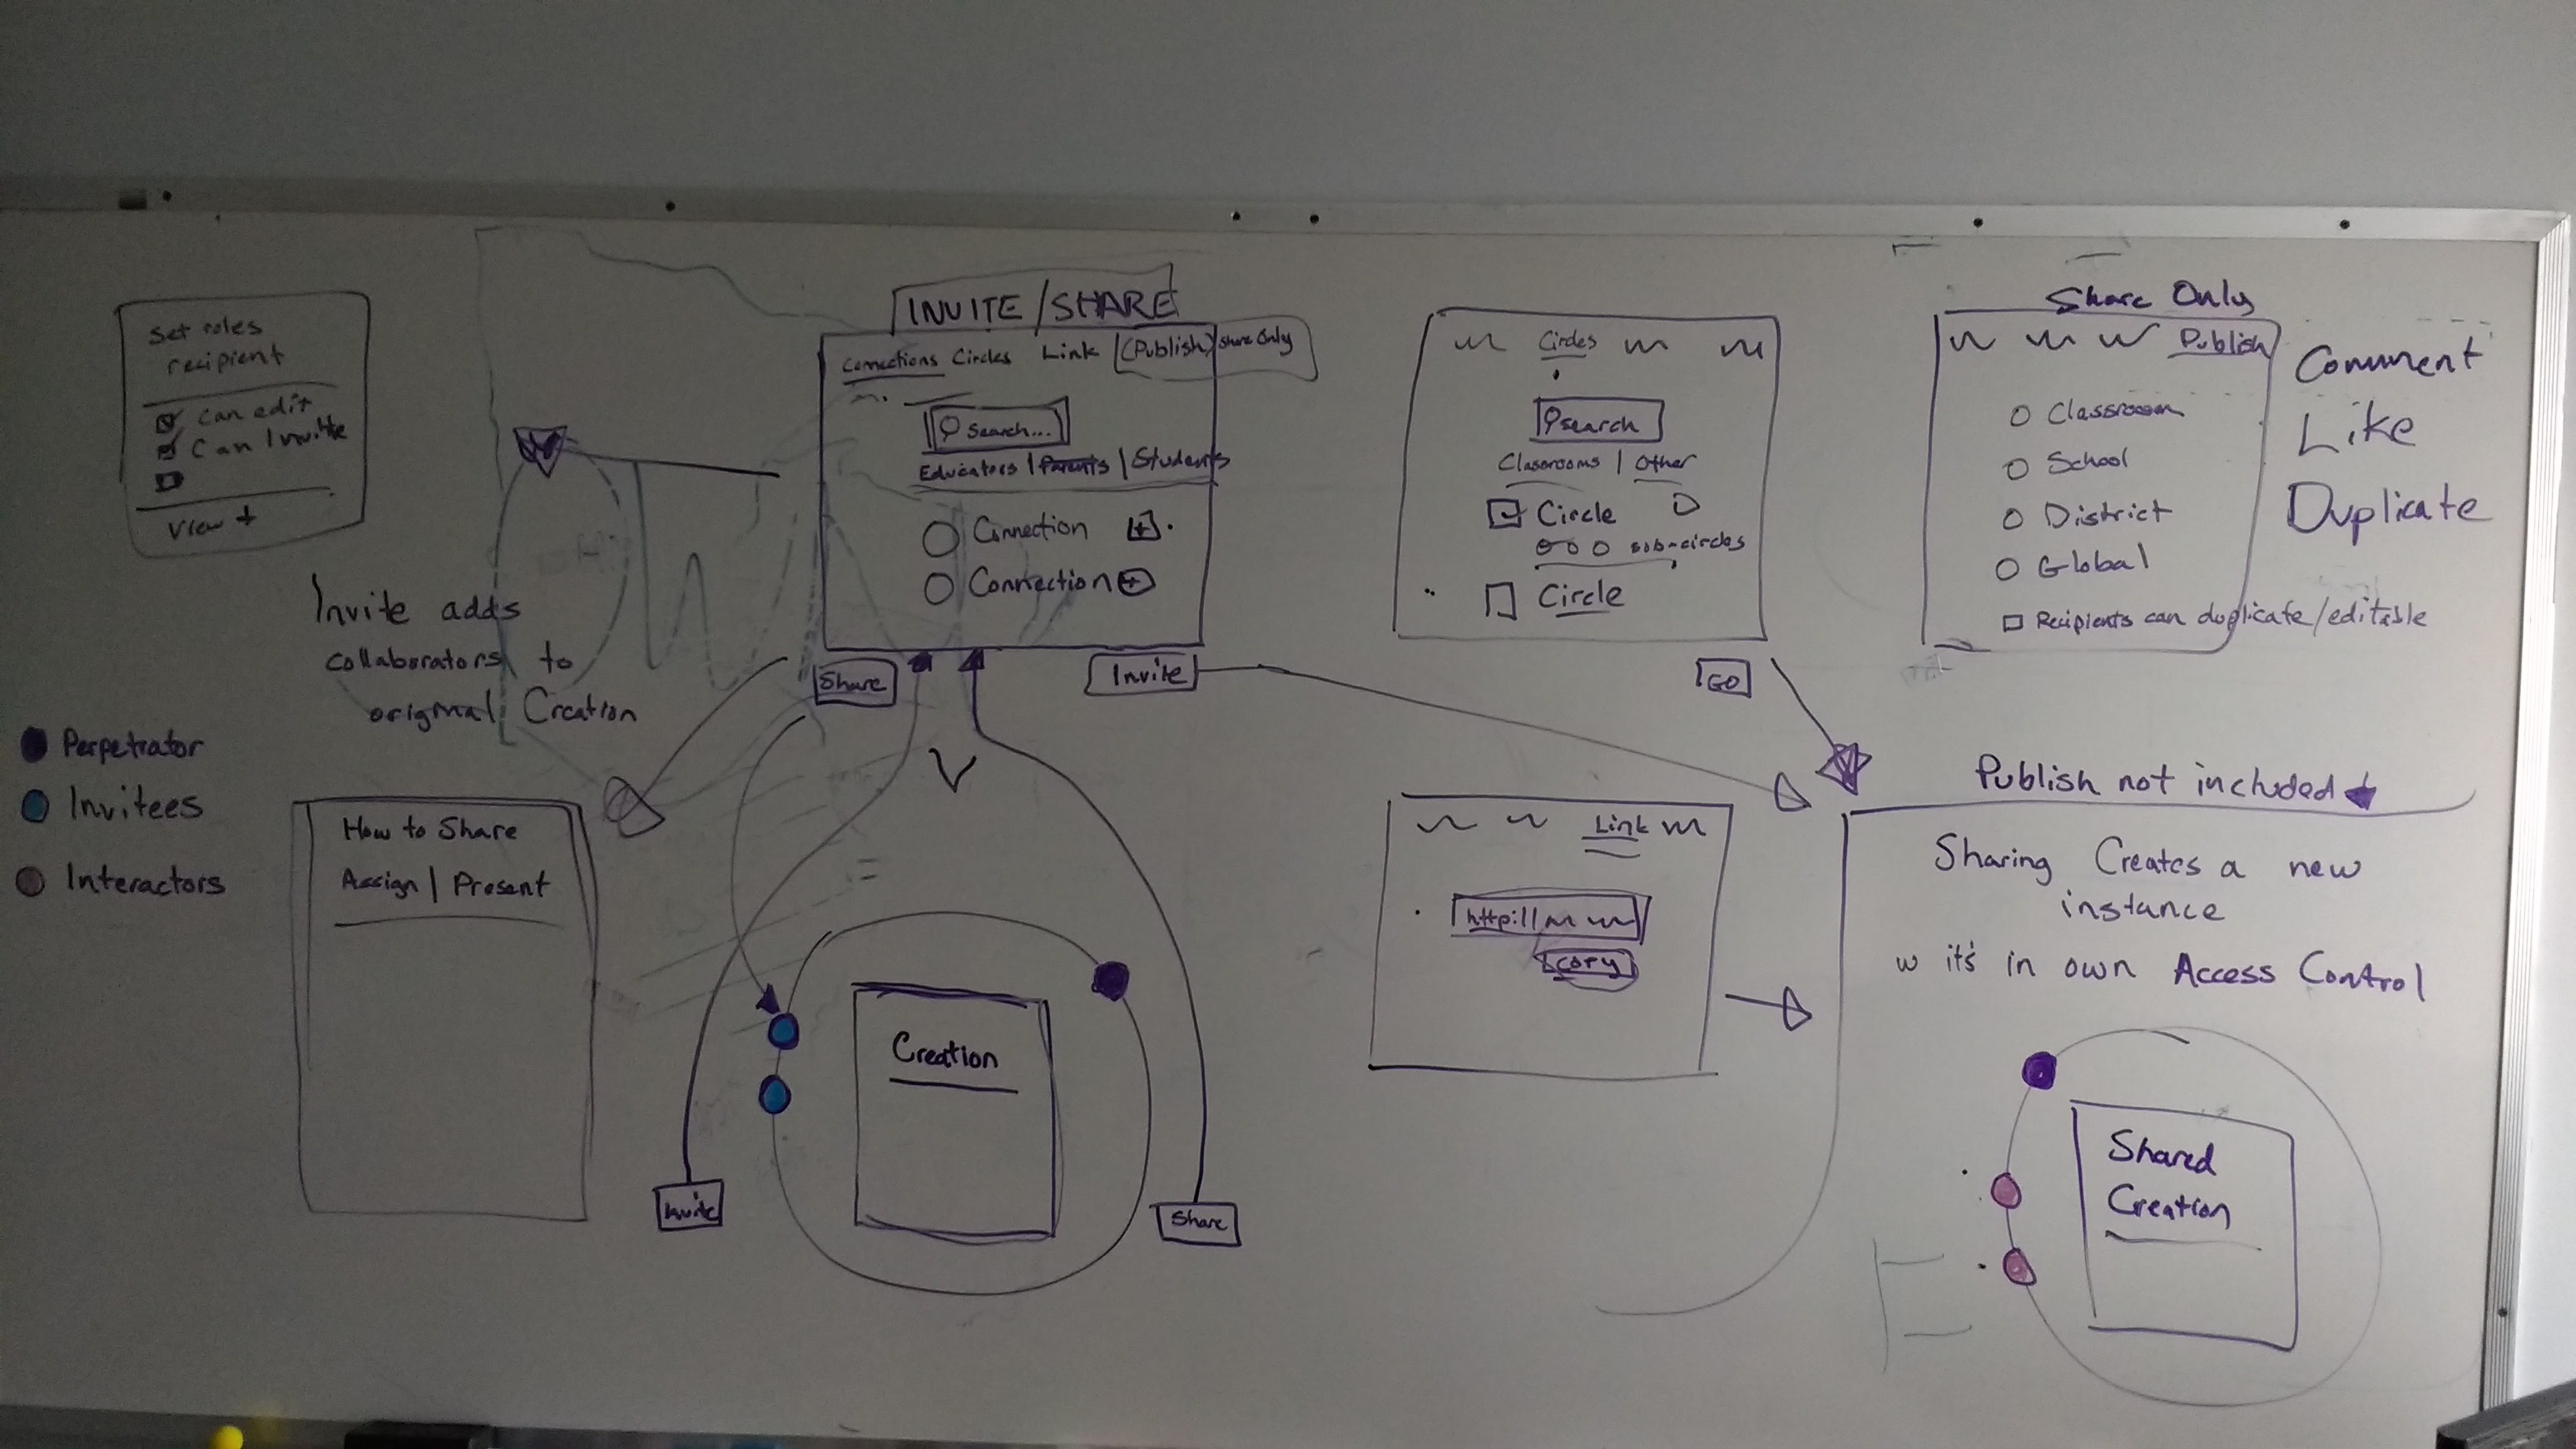 Set roles
recipient
can edit
Can Invite
View +
Invite adds
collaborators to
original Creation
Perpetrator
Invitees
Interactors
How to Share
Assign | Present
INVITE / SHARE
Connections Circles Link (Publish) Share Only
Search...
Educators | Parents | Students
Connection +
Connection +
Share
Invite
Creation
Invite
Share
Circles
search
Classrooms | Other
Circle
sub-circles
Circle
GO
Link
http://
copy
Share Only
Publish
Classroom
School
District
Global
Recipients can duplicate/editable
Comment
Like
Duplicate
Publish not included
Sharing Creates a new
instance
w it's in own Access Control
Shared
Creation